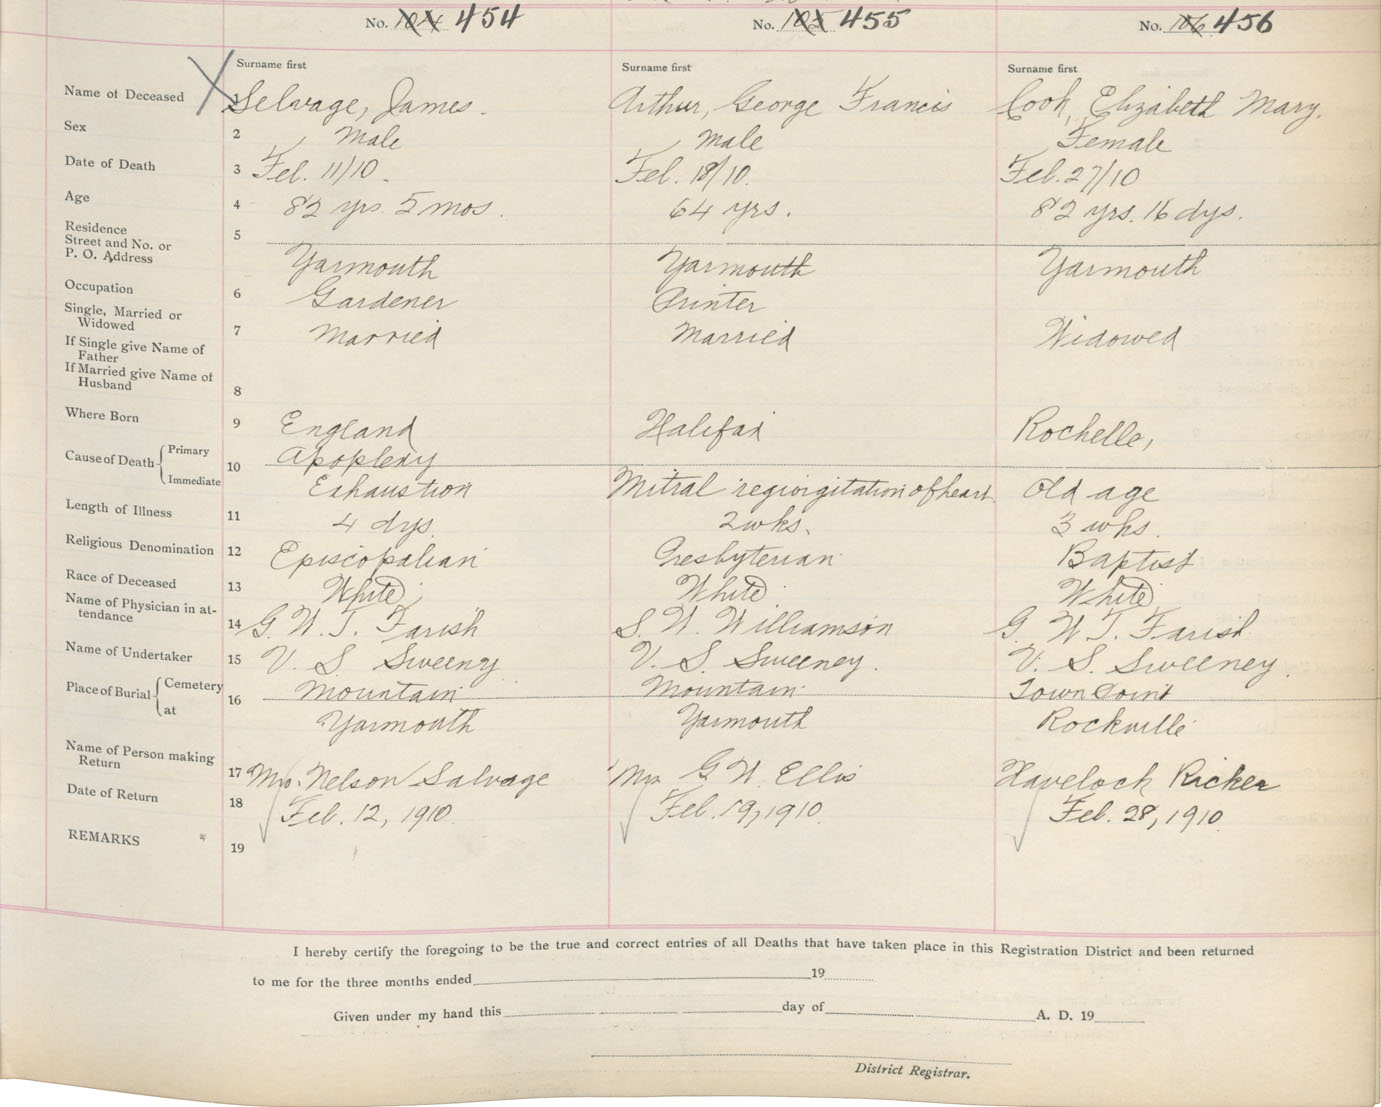 No. 104 454 No. 105 455 No. 106 456
Surname first Surname first Surname first
Name of Deceased 1 Selvage, James. Arthur, George Francis Cook, Elizabeth Mary.
Sex 2 Male Male Female
Date of Death 3 Feb. 11/10. Feb. 18/10. Feb. 27/10
Age 4 82 yrs. 5 mos. 64 yrs. 82 yrs. 16 dys.
Residence
Street and No. or 5
P. O. Address Yarmouth Yarmouth Yarmouth
Occupation 6 Gardener Printer
Single, Married or
Widowed 7 Married Married Widowed
If Single give Name of
Father
If Married give Name of
Husband 8
Where Born 9 England Halifax Rochelle,
Cause of Death Primary 10 Apoplexy
Immediate Exhaustion Mitral regiorgitation of heart. Old age
Length of Illness 11 4 dys. 2 wks. 3 wks.
Religious Denomination 12 Episcopalian Presbyterian Baptist
Race of Deceased 13 White White White
Name of Physician in at-
tendance 14 G. W. T. Farish S. W. Williamson G. W. T. Farish
Name of Undertaker 15 V. S. Sweeny V. S. Sweeney. V. S. Sweeney.
Place of Burial Cemetery 16 Mountain Mountain Town Point
at Yarmouth Yarmouth Rockville
Name of Person making
Return 17 Mrs. Nelson Salvage Mrs G W. Ellis Havelock Ricker
Date of Return 18 Feb. 12, 1910. Feb. 19, 1910. Feb. 28, 1910.
REMARKS 19
I hereby certify the foregoing to be the true and correct entries of all Deaths that have taken place in this Registration District and been returned
to me for the three months ended 19
Given under my hand this day of A. D. 19
District Registrar.